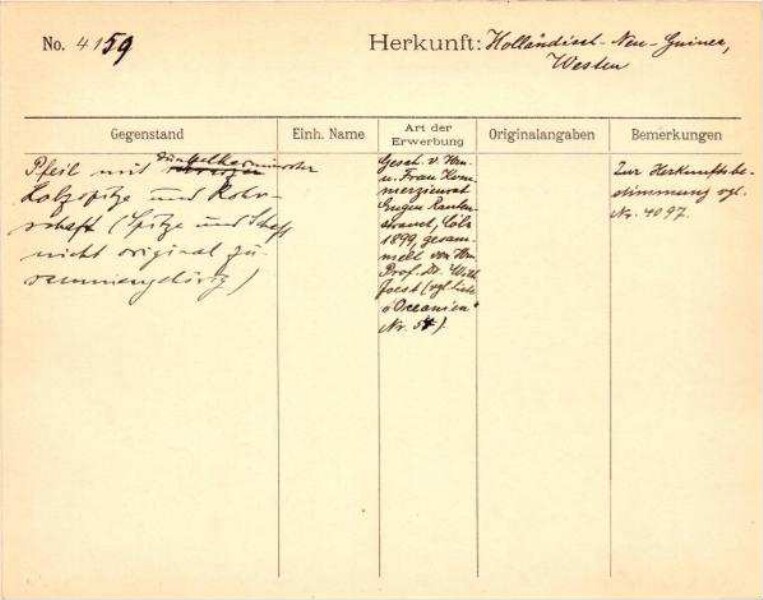 No. 4159
Herkunft: Holländisch-Neu-Guinea,
Westen
Gegenstand
Einh. Name
Art der
Erwerbung
Originalangaben
Bemerkungen
dunkelkarminroter
Pfeil mit
Holzspitze und Rohr-
schaft (Spitze und Schaft
nicht original zu-
sammengehörig)
Gesch. v. Hrn.
u. Frau Kom-
merzienrat
Eugen Rauten-
strauch, Cöln
1899, gesam-
melt von Hrn.
Prof. Dr. Wilh.
Joest (vgl. Liste
"Oceanien"
Nr. 54).
Zur Herkunftsbe-
stimmung vgl.
Nr. 4097.